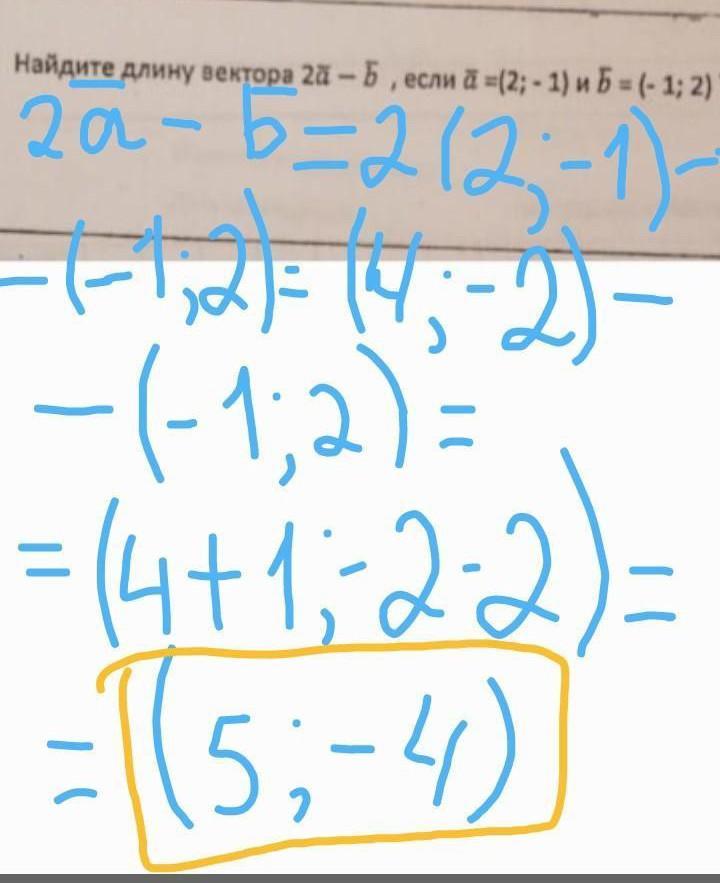 Найдите длину вектора 2a̅ – b̅ , если a̅ =(2; - 1) и b̅ = (- 1; 2)
2a̅ - b̅ = 2(2;-1)-
-(-1;2)= (4;-2)-
-(-1;2)=
=(4+1;-2-2)=
=(5;-4)